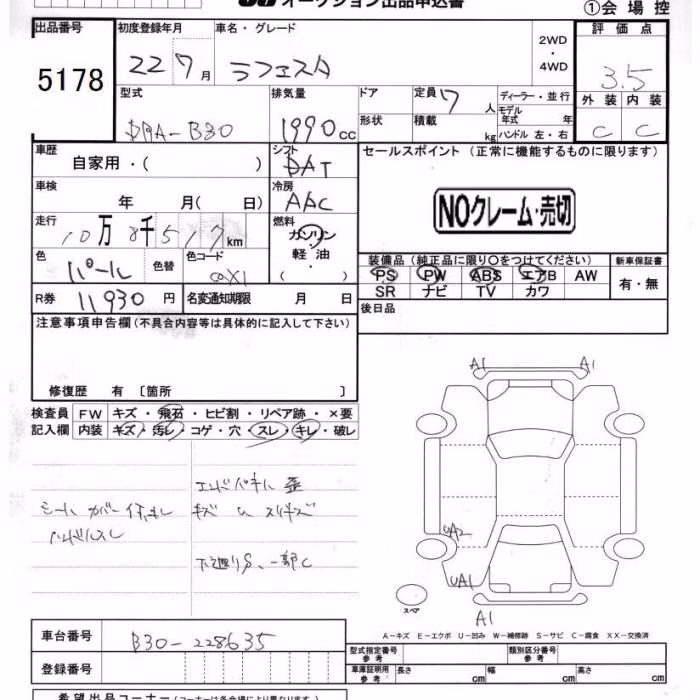 オークション出品申込書
①会場控
出品番号 初度登録年月 車名・グレード 2WD・4WD 評価点
5178 22 7月 ラフェスタ 3.5
型式 排気量 ドア 定員 7人 ディーラー・並行 外装 内装
DBA-B30 1990cc 形状 積載 kg モデル年式 年 C C
ハンドル 左・右
車歴 シフト セールスポイント(正常に機能するものに限ります)
自家用・( ) DAT
車検 冷房
年 月( 日) AAC NOクレーム・売切
走行 燃料
10万8千517km ガソリン・軽油・( )
色 色替 色コード 装備品(純正品に限り○をつけてください) 新車保証書
パール PS PW ABS エアB AW 有・無
SR ナビ TV カワ
R券 11930円 名変通知期限 月 日 後日品
注意事項申告欄(不具合内容等は具体的に記入して下さい)
修復歴 有〔箇所 〕
検査員 FW キズ・飛石・ヒビ割・リペア跡・×要
記入欄 内装 キズ・汚レ・コゲ・穴・スレ・キレ・破レ
A1 A1
エンドパネル 歪
シートカバー
ハンドルスレ
下廻りS、一部C
UA2
UA1
スペア
A1
A-キズ E-エクボ U-凹み W-補修跡 S-サビ C-腐食 XX-交換済
車台番号 B30-228635
型式指定番号 参考 類別区分番号 参考
登録番号 車庫証明用 参考 長さ cm 幅 cm 高さ cm
希望出品コーナー(コーナーは各会場により異なります)